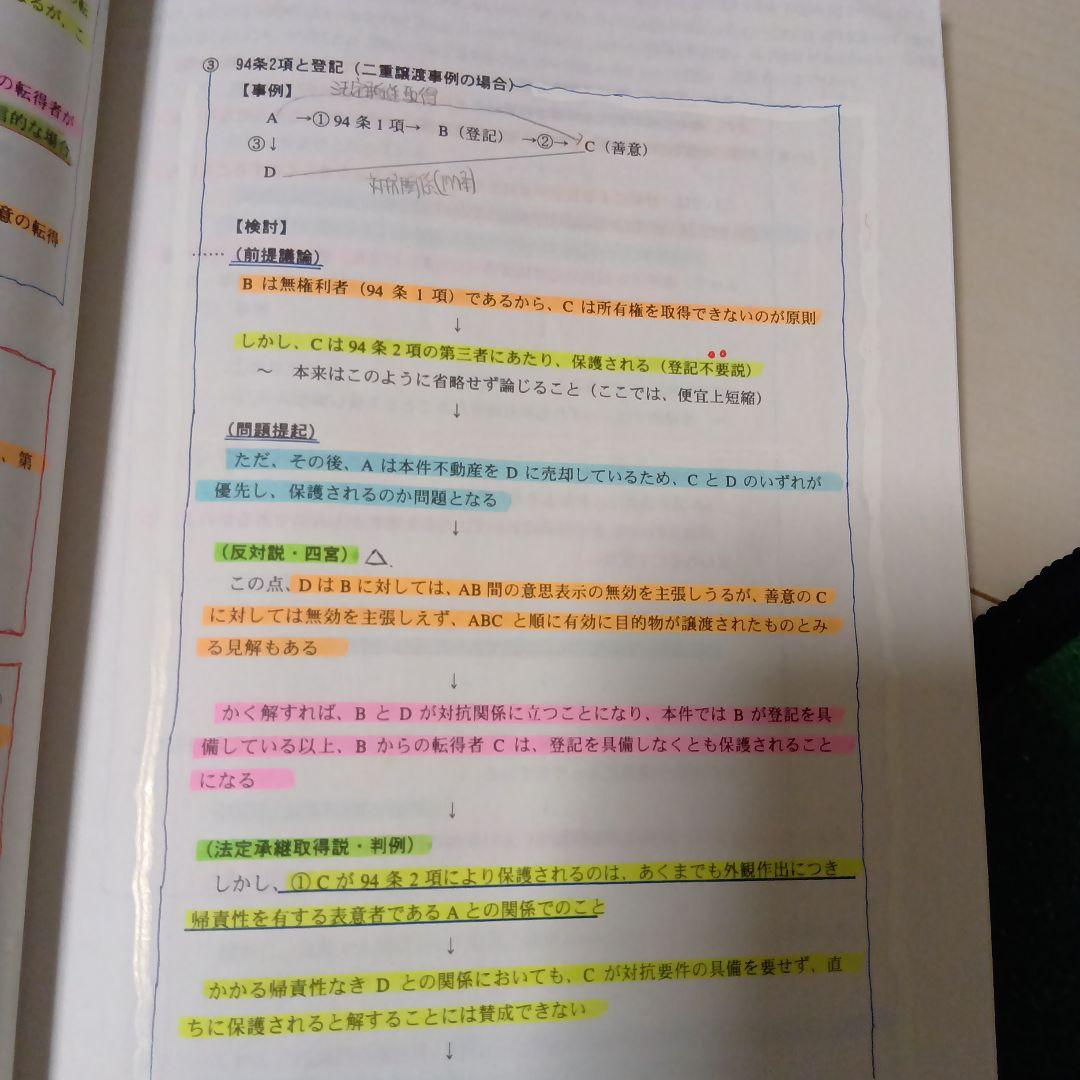 るが、こ
の転得者が
言的な場合
意の転得
、第
③ 94条2項と登記（二重譲渡事例の場合）
【事例】 法定承継取得
A →①94条1項→ B（登記） →②→ C（善意）
③↓
D
対抗関係(177条)
【検討】
……（前提議論）
B は無権利者（94 条 1 項）であるから、C は所有権を取得できないのが原則
↓
しかし、Cは94条2項の第三者にあたり、保護される（登記不要説）
～ 本来はこのように省略せず論じること（ここでは、便宜上短縮）
↓
（問題提起）
ただ、その後、A は本件不動産を D に売却しているため、C と D のいずれが
優先し、保護されるのか問題となる
↓
（反対説・四宮） △
この点、D は B に対しては、AB 間の意思表示の無効を主張しうるが、善意の C
に対しては無効を主張しえず、ABC と順に有効に目的物が譲渡されたものとみ
る見解もある
↓
かく解すれば、B と D が対抗関係に立つことになり、本件では B が登記を具
備している以上、B からの転得者 C は、登記を具備しなくとも保護されること
になる
↓
（法定承継取得説・判例）
しかし、①C が 94 条 2 項により保護されるのは、あくまでも外観作出につき
帰責性を有する表意者である A との関係でのこと
↓
かかる帰責性なき D との関係においても、C が対抗要件の具備を要せず、直
ちに保護されると解することには賛成できない
↓